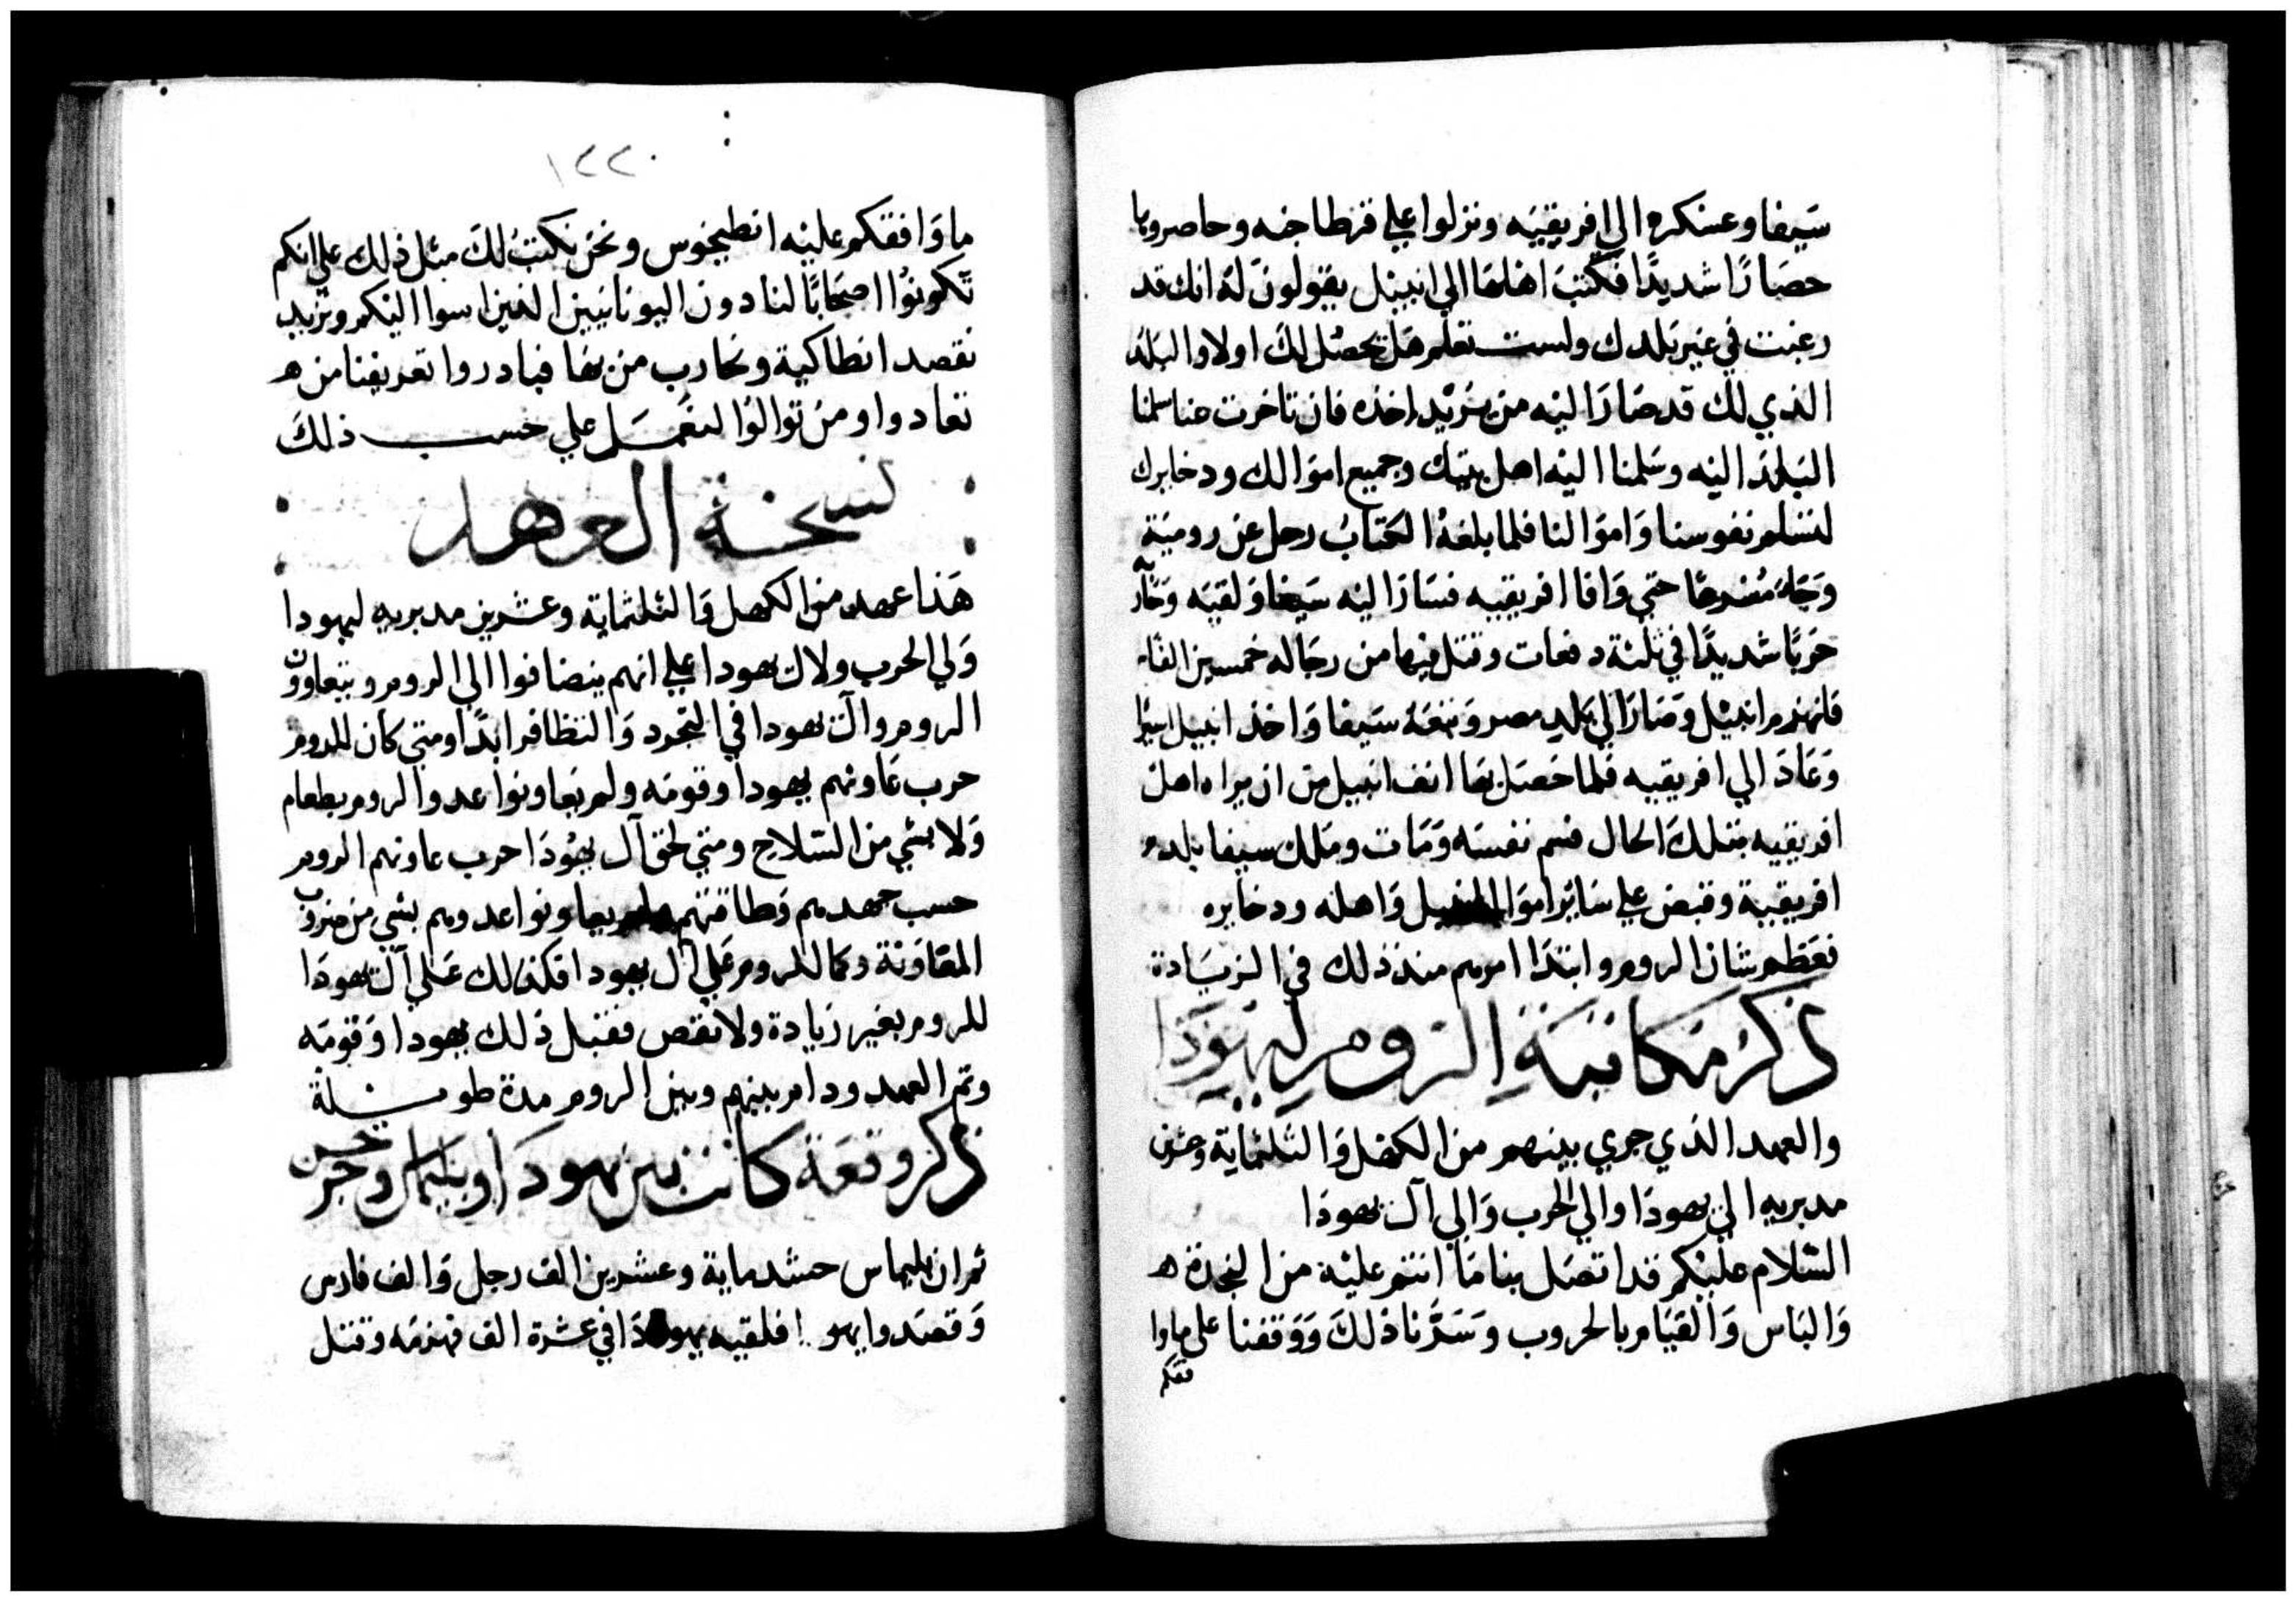 سَيفا وعسكره الي افريقيَه ونزلوا علي قرطاجنه وحاصروها
حصَارًا شديدًا فكتبَ اهلهَا الي انيبل يقولون لهُ انك قد
رغبت في غير بَلدك ولست تعلم هَل يحصُل لكَ اولا والبَلد
الذي لك قد صَارَ اليْه من يريْد اخذه فان تاخرت عنا سلمنا
البَلدَ اليْه وسَلمنا اليْه اهل بيتك وجميع اموَالك ودخايرك
لتسلم نفوسنا وَاموَالنا فلما بلغهُ الكتابُ رحل عن روميَة
وَجَاءَ مُسْرعًا حتي وَافا افريقيه فسَارَ اليْه سَيفا وَلقيَه وَحَاربَه
حَربًا شديدًا في ثلثة دفعات وقتل فيها من رجَاله خمسين الفًا
فانهزم انيبْل وَصَارَ الي بَلد مصر وَتبعَهُ سَيفا وَاخذ انيبيل اسيرًا
وَعَادَ الي افريقيه فلما حَصَل بهَا انف انيبيل من ان يراه اهل
افريقيه بتلكَ الحال فسم نفسَه وَمَات ومَلك سيفا بلد
افريقيَة وقبض علي سَائر اموَال انيبيل وَاهله ودخايره
فعَظم شان الروم وابتدَا امرهم منذ ذلك في الزيَادة
ذكرُ مُكاتبَة الرُوم ليَهُودَا
والعهد الذي جري بينهم من الكهْل وَالثلثمَاية وعشرين
مدبريه الي يهودَا والي الحَرب وَالي آل يَهودَا
السَّلام عليْكم قد اتصَل بنا مَا انتم عليْه من النجدة ه
وَالبَاس وَالقيَام بالحروب وسَرَّنا ذلكَ وَوَقفنا علي ما وا
فقكم
١٢٢٠
ما وَافقكم عليْه انطيخوس ونحْن نكتبُ لكَ مثل ذلك علي انكم
تكونُوا اصحَابًا لنا دون اليونانيَين الذين اسوا اليْكم ونريد
نقصد انطاكية ونحارب من بهَا فبادروا تعريفنا من ه
تعادوا ومن توالوُا لنعْمَل علي حسب ذلكَ
نسخة العهد
هَذا عهد من الكهل وَالثلثماية وعشرين مدبريه ليهودا
وَلي الحرب ولال يهودا علي انهم ينضافوا الي الروم ويتعاون
الروم وال يهودا في التجرد وَالتظافر ابدًا ومتي كان للروم
حرب عَاونهم يهودا وقومَه ولم يعَاونوا عدو الروم بطعام
وَلا بشي من السّلاح ومتي لحق آل يهُودَا حرب عاونهم الروم
حسب جهدهم وَطاقتهم ولم يعاونوا عدوهم بشي من ضروب
المعَاوَنة وكما للروم عَلي آل يهودا فكذالك عَلي آل يهودَا
للروم بغير زيادة ولا نقص فقبل ذلك يهودا وَقومَه
وتم العهد ودام بينهم وبين الروم مدة طويلة
ذكر وقعَة كانت بين يهودَا وبليماس وخبر حسن
ثم ان بليماس حشد ماية وعشرين الف رجل وَالف فارس
وَقصَد وايهو .. ا فلقيه يهودَا في عشرة الف فهزمَه وقتل